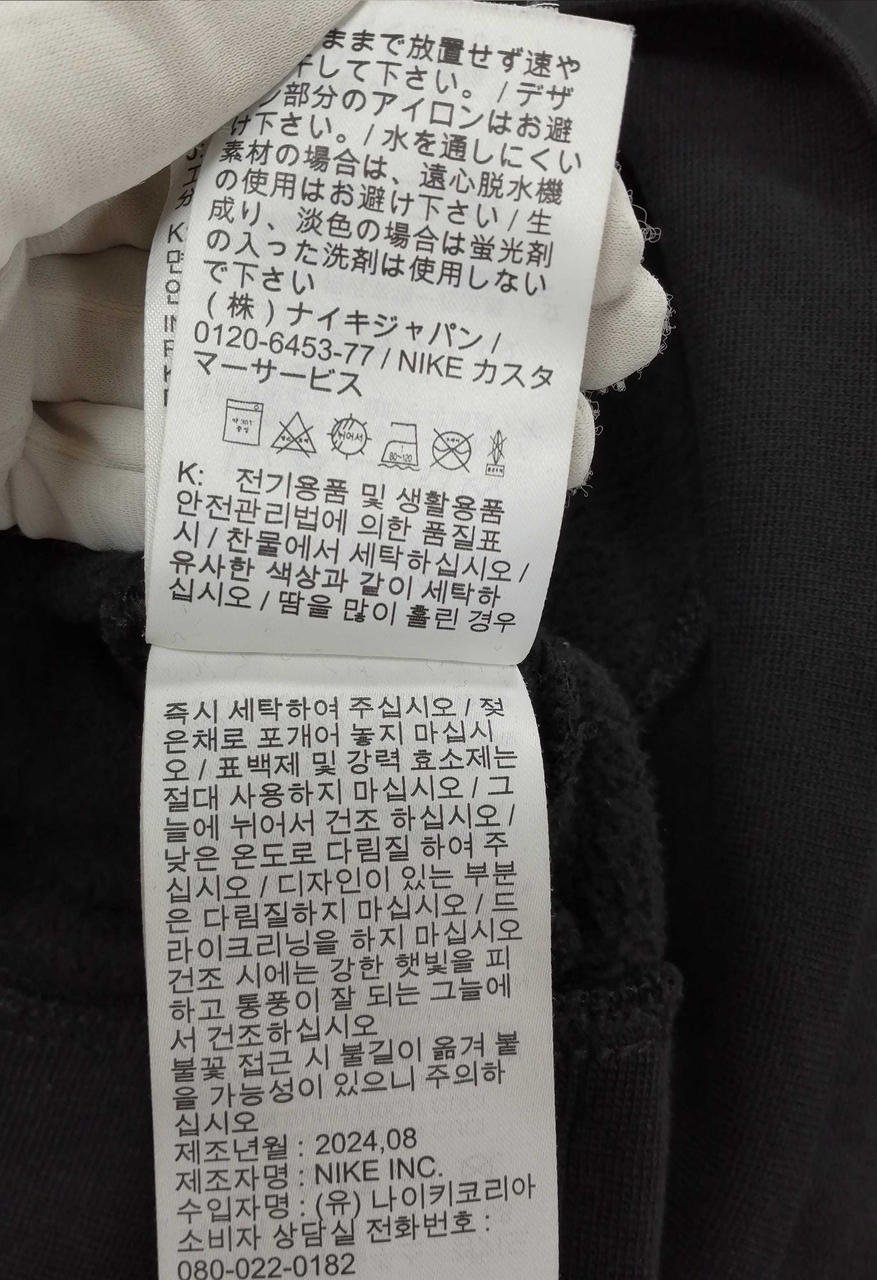 ままで放置せず速や
干して下さい。/ デザ
ン部分のアイロンはお避
け下さい。/ 水を通しにくい
素材の場合は、遠心脱水機
の使用はお避け下さい / 生
成り、淡色の場合は蛍光剤
の入った洗剤は使用しない
で下さい
(株) ナイキジャパン /
0120-6453-77 / NIKE カスタ
マーサービス
뉘어서
80~120
K: 전기용품 및 생활용품
안전관리법에 의한 품질표
시 / 찬물에서 세탁하십시오 /
유사한 색상과 같이 세탁하
십시오 / 땀을 많이 흘린 경우
즉시 세탁하여 주십시오 / 젖
은채로 포개어 놓지 마십시
오 / 표백제 및 강력 효소제는
절대 사용하지 마십시오 / 그
늘에 뉘어서 건조 하십시오 /
낮은 온도로 다림질 하여 주
십시오 / 디자인이 있는 부분
은 다림질하지 마십시오 / 드
라이크리닝을 하지 마십시오
건조 시에는 강한 햇빛을 피
하고 통풍이 잘 되는 그늘에
서 건조하십시오
불꽃 접근 시 불길이 옮겨 붙
을 가능성이 있으니 주의하
십시오
제조년월 : 2024,08
제조자명 : NIKE INC.
수입자명 : (유) 나이키코리아
소비자 상담실 전화번호 :
080-022-0182